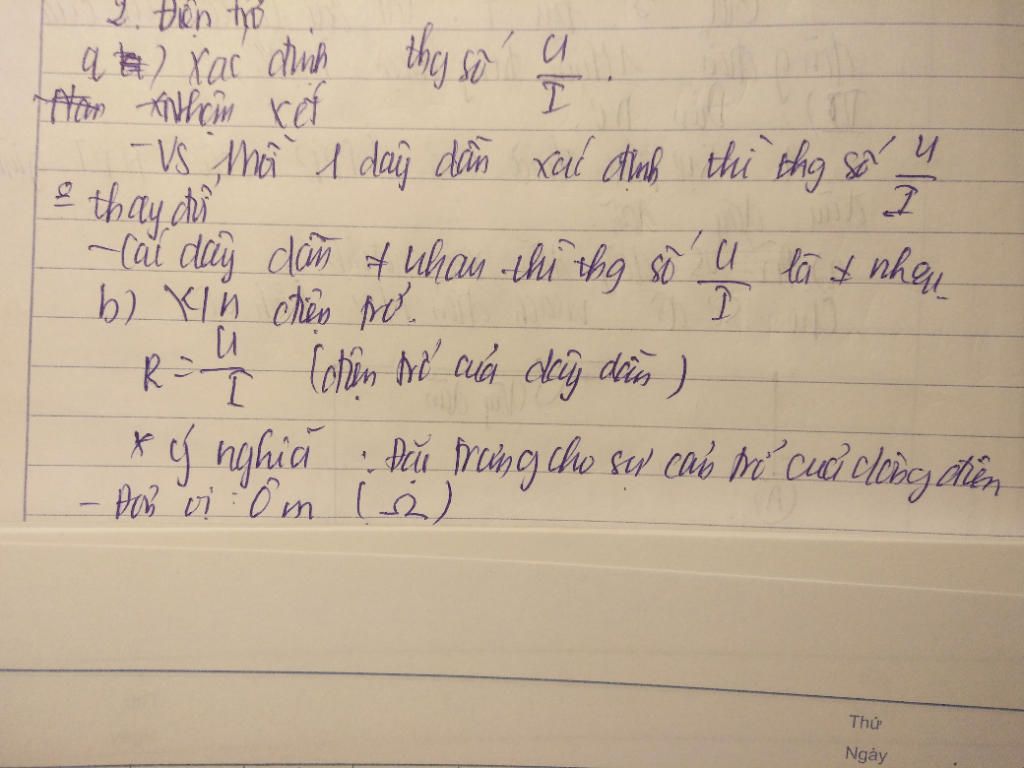 2. Điện trở
a) Xác định thg số U/I.
Nhận xét
- Vs Mỗi 1 dây dẫn xác định thì thg số U/I
thay đổi
- Các dây dẫn ≠ nhau thì thg số U/I là ≠ nhau.
b) điện trở.
R = U/I (điện trở của dây dẫn)
* Ý nghĩa : Đặc trưng cho sự cản trở của dòng điện
- Đơn vị : Ôm (Ω)
Thứ
Ngày